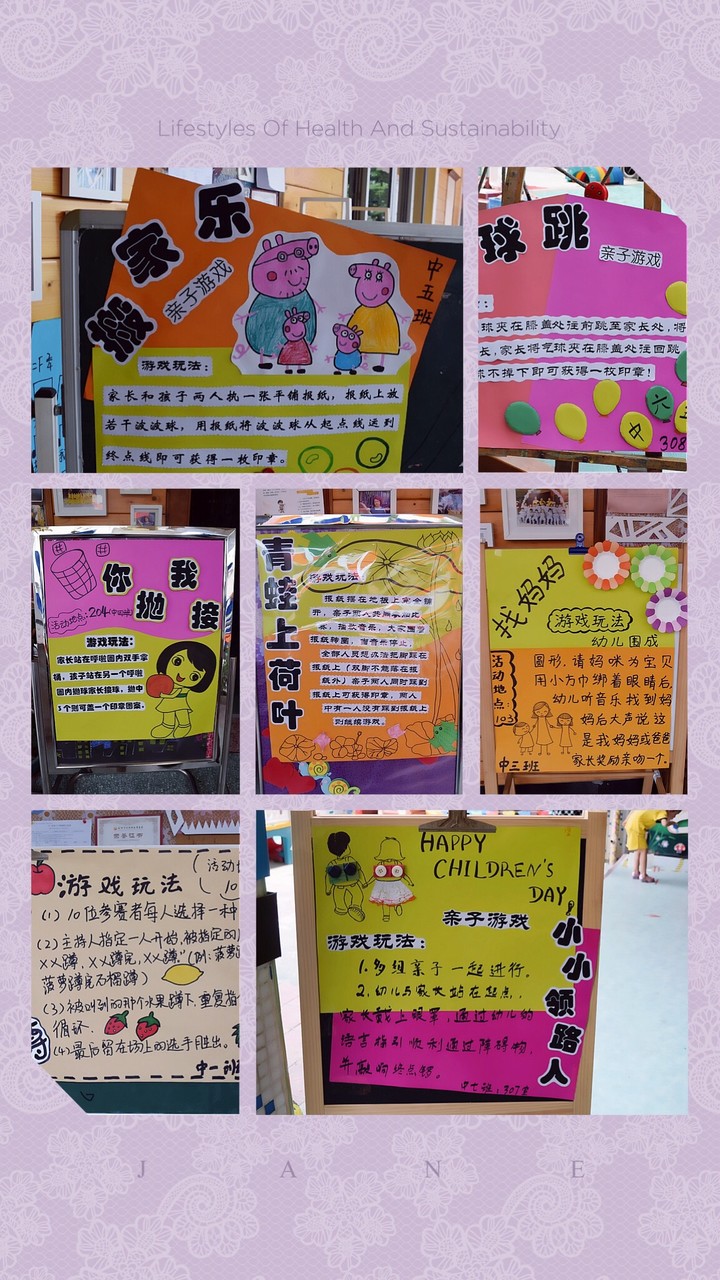 Lifestyles Of Health And Sustainability
搬家乐
亲子游戏
中五班
游戏玩法：
家长和孩子两人执一张平铺报纸，报纸上放
若干波波球，用报纸将波波球从起点线运到
终点线即可获得一枚印章。
球跳
亲子游戏
：
球夹在膝盖处往前跳至家长处，将
长，家长将气球夹在膝盖处往回跳
不掉下即可获得一枚印章！
中六
308
你抛我接
活动地点：204(中四班)
游戏玩法：
家长站在呼啦圈内双手拿
桶，孩子站在另一个呼啦
圈内抛球家长接球，抛中
5个则可盖一个印章图案。
青蛙上荷叶
游戏玩法：
报纸摆在地板上完全铺
开，亲子两人共同参加比
赛，播放音乐，大家围着
报纸转圈，当音乐停止，
全部人员想办法把脚踩在
报纸上（双脚不能落在报
纸外）亲子两人同时踩到
报纸上可获得印章，两人
中有一人没有踩到报纸上
则继续游戏。
找妈妈
游戏玩法
幼儿围成
圆形，请妈咪为宝贝
用小方巾绑着眼睛后，
幼儿听音乐找到妈
妈后大声说这
是我妈妈或爸爸
家长奖励亲吻一个。
活动地点：103
中三班
游戏玩法
(活动
10
(1) 10位参赛者每人选择一种
(2) 主持人指定一人开始，被指定的
××蹲，××蹲完，××蹲."(例：菠萝
菠萝蹲完石榴蹲)
(3) 被叫到的那个水果蹲下，重复指
循环.
(4) 最后留在场上的选手胜出。
中一班
HAPPY
CHILDREN'S
DAY
亲子游戏
小小领路人
游戏玩法：
1.多组亲子一起进行。
2.幼儿与家长站在起点，
家长戴上眼罩，通过幼儿的
语言指引顺利通过障碍物，
并敲响终点锣。
中七班，307室
J A N E